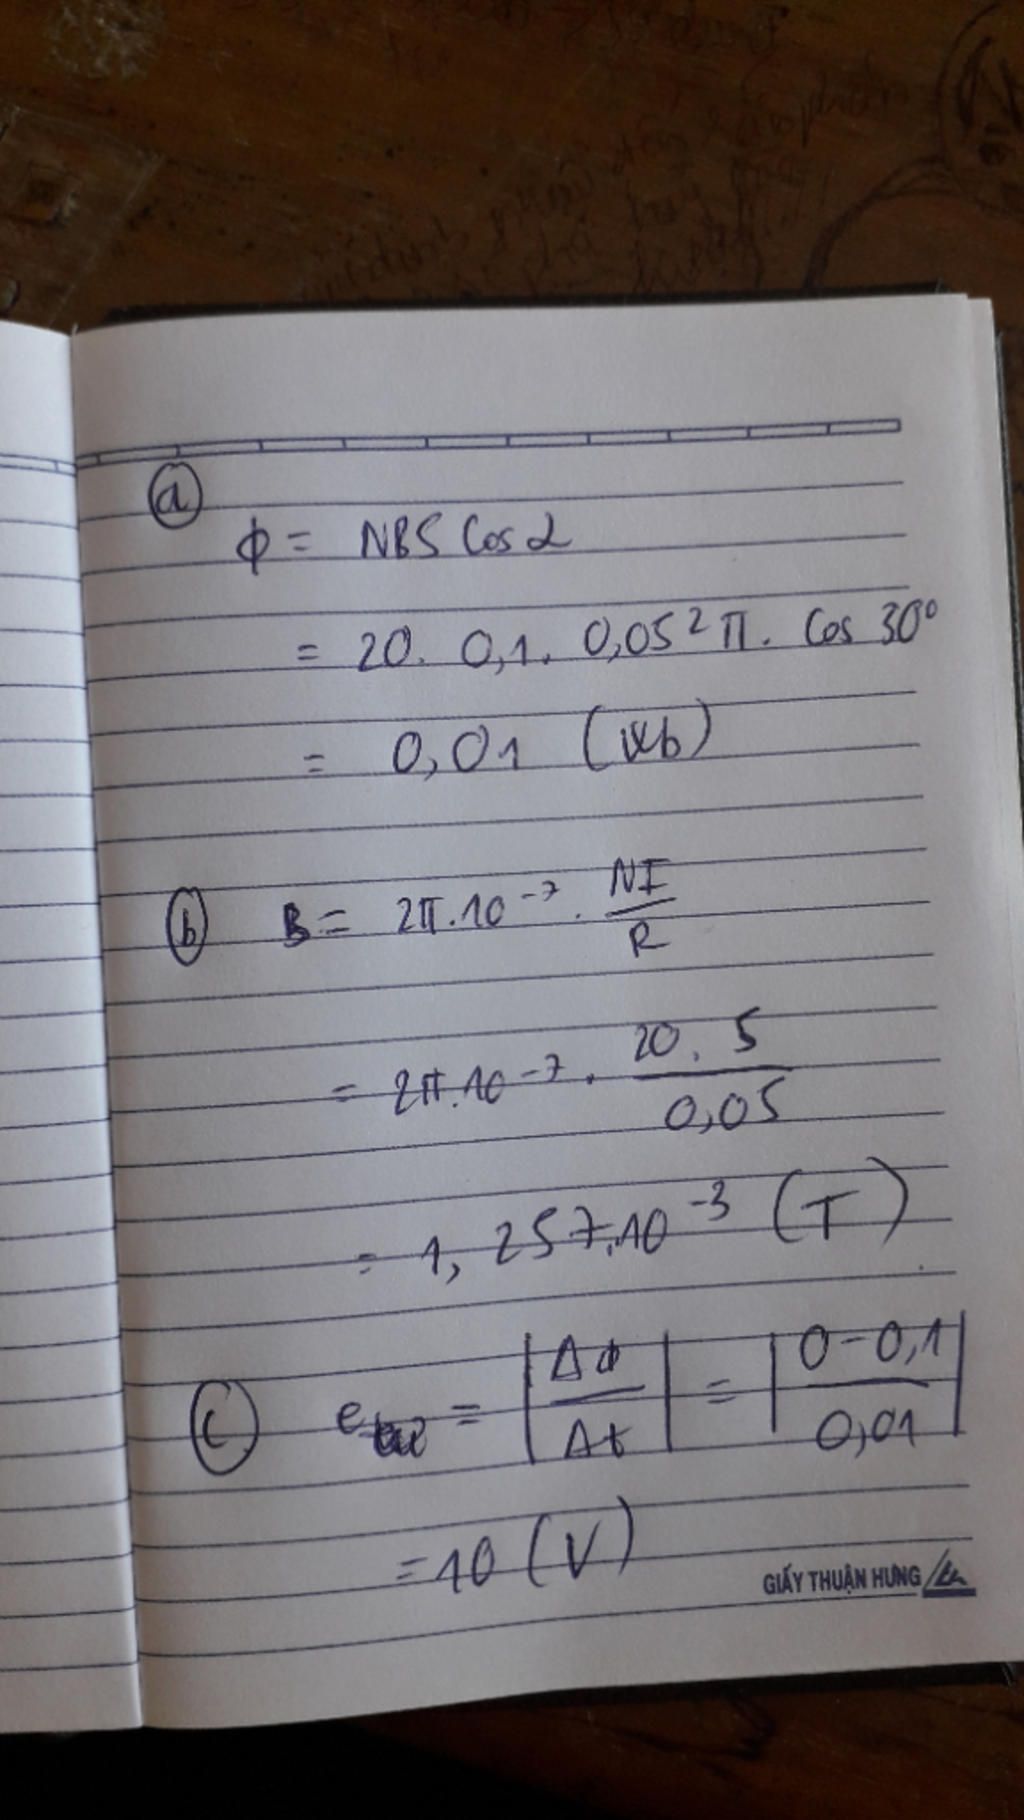 a
ϕ = NBS Cos α
= 20. 0,1. 0,05² π. Cos 30°
= 0,01 (Wb)
b B = 2π.10⁻⁷. NI/R
= 2π.10⁻⁷. 20. 5/0,05
= 1,257.10⁻³ (T)
c e = |Δϕ/Δt| = |0-0,1/0,01|
= 10 (V)
GIẤY THUẬN HƯNG